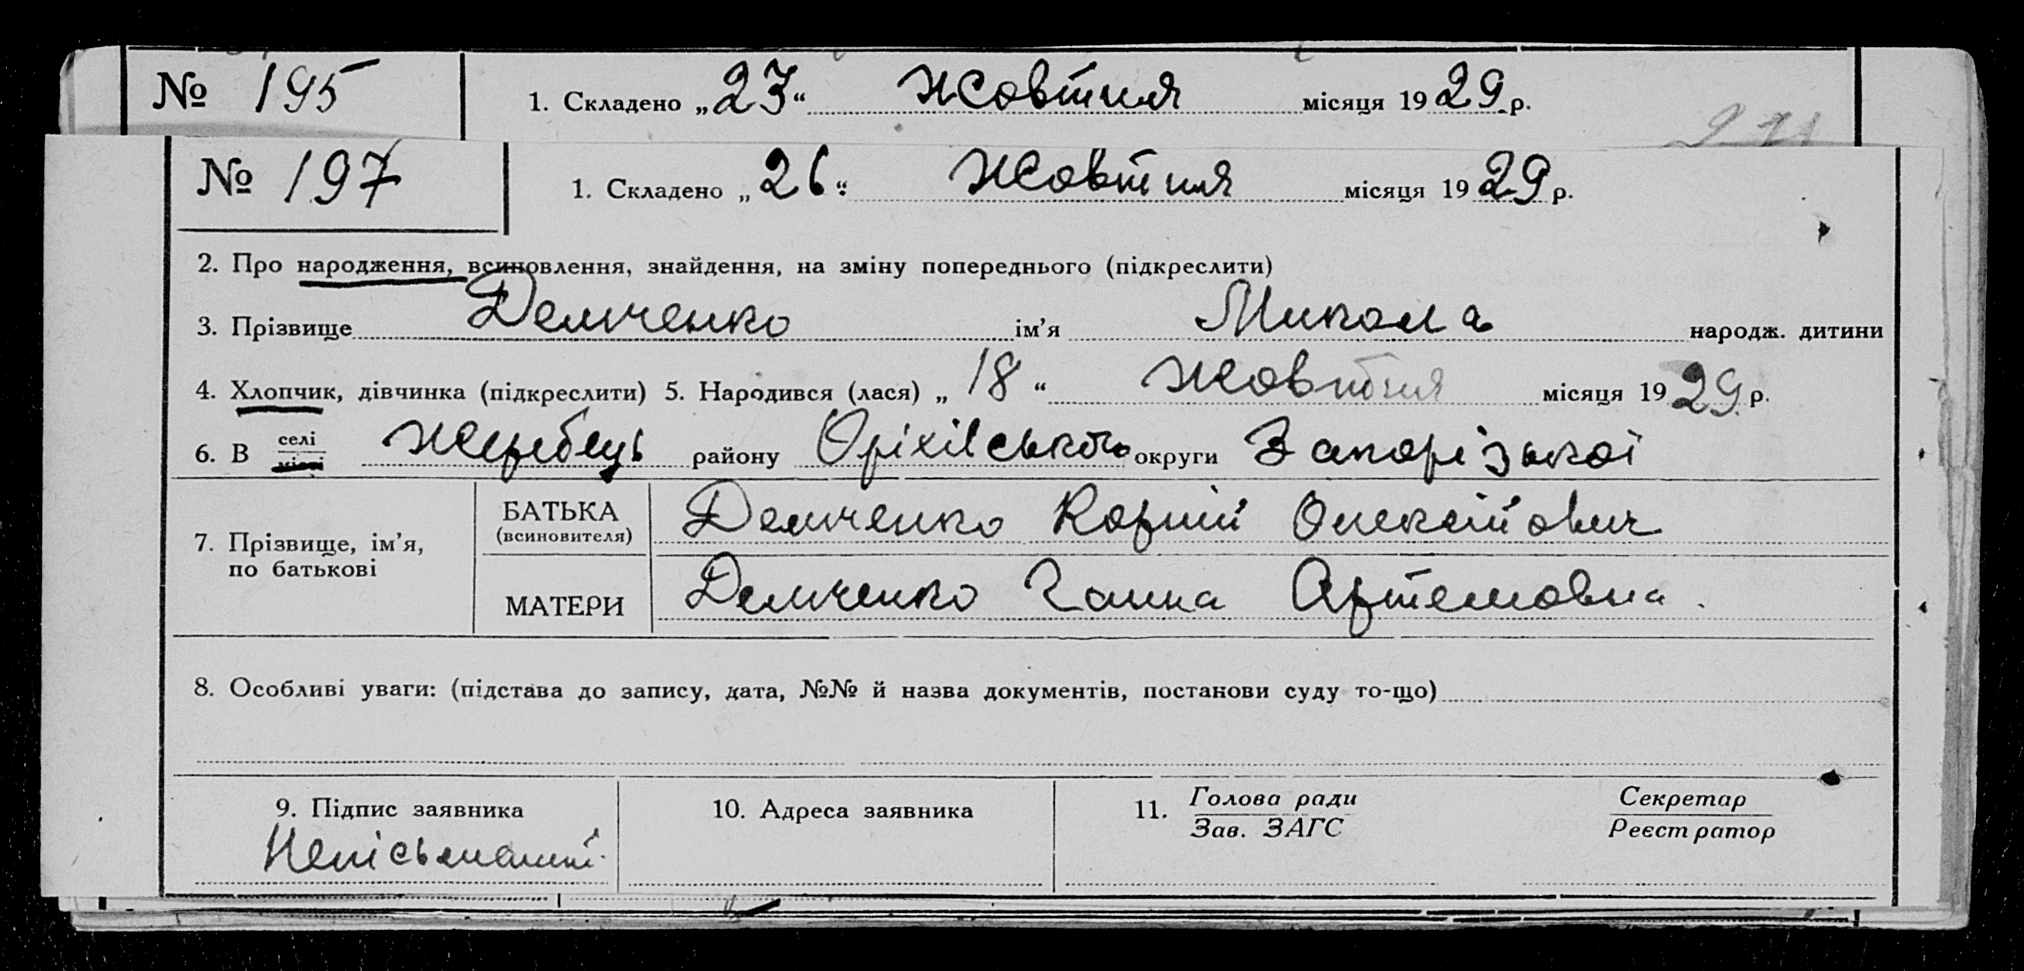 № 195 1. Складено „23“ жовтня місяця 1929 р.
№ 197 1. Складено „26“ жовтня місяця 1929 р.
2. Про народження, всиновлення, знайдення, на зміну попереднього (підкреслити)
3. Прізвище Демченко ім’я Микола народж. дитини
4. Хлопчик, дівчинка (підкреслити) 5. Народився (лася) „18“ жовтня місяця 1929 р.
6. В селі місті Жеребець району Оріхівського округи Запорізької
7. Прізвище, ім’я, по батькові
БАТЬКА (всиновителя) Демченко Корній Олексійович
МАТЕРИ Демченко Ганна Артемовна.
8. Особливі уваги: (підстава до запису, дата, №№ й назва документів, постанови суду то-що)
9. Підпис заявника 10. Адреса заявника 11. Голова ради Секретар
Зав. ЗАГС Реєстратор
Непісьманий.